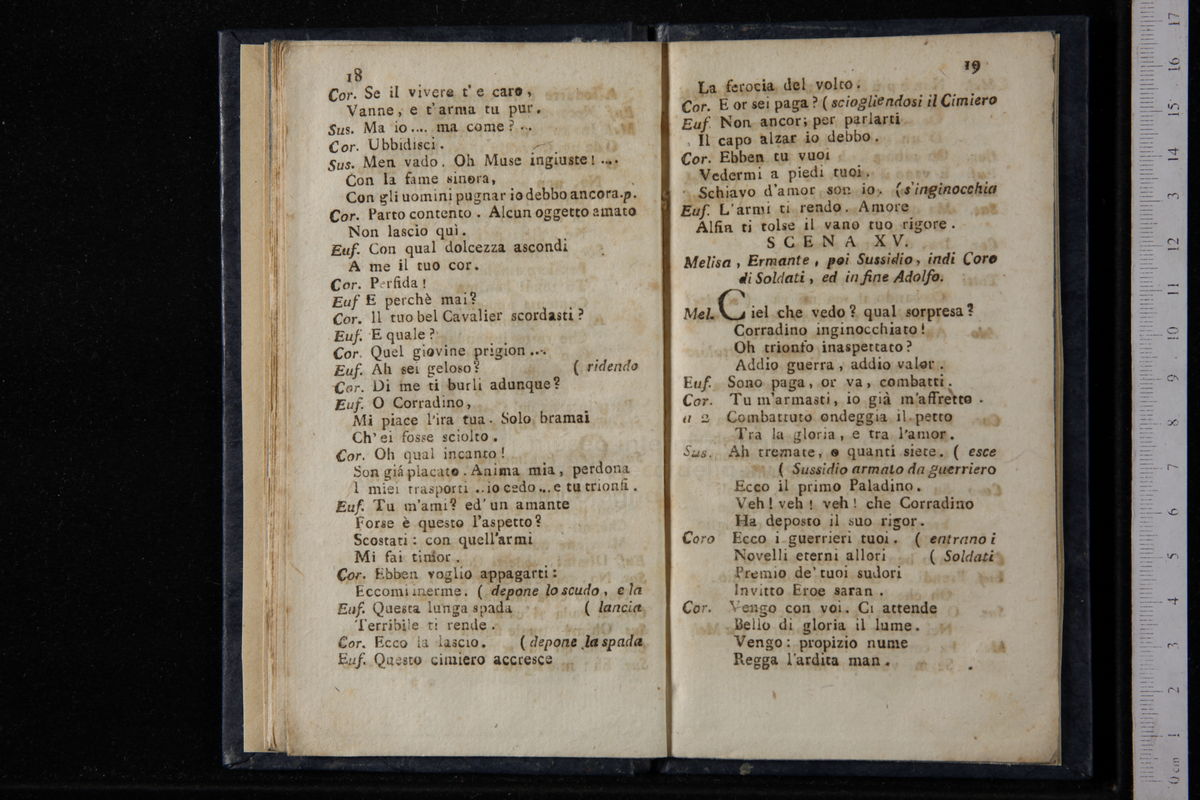 18
Cor. Se il vivere t' e caro,
Vanne, e t'arma tu pur.
Sus. Ma io.... ma come? ...
Cor. Ubbidisci.
Sus. Men vado. Oh Muse ingiuste! ....
Con la fame sinora,
Con gli uomini pugnar io debbo ancora.p.
Cor. Parto contento. Alcun oggetto amato
Non lascio qui.
Euf. Con qual dolcezza ascondi
A me il tuo cor.
Cor. Perfida!
Euf E perchè mai?
Cor. Il tuo bel Cavalier scordasti?
Euf. E quale?
Cor. Quel giovine prigion ...
Euf. Ah sei geloso? ( ridendo
Cor. Di me ti burli adunque?
Euf. O Corradino,
Mi piace l'ira tua. Solo bramai
Ch' ei fosse sciolto.
Cor. Oh qual incanto!
Son giá placato. Anima mia, perdona
I miei trasporti ..io cedo... e tu trionfi.
Euf. Tu m'ami? ed' un amante
Forse è questo l'aspetto?
Scostati: con quell'armi
Mi fai timor.
Cor. Ebben voglio appagarti:
Eccomi inerme. ( depone lo scudo, e la
Euf. Questa lunga spada ( lancia
Terribile ti rende.
Cor. Ecco la lascio. (depone la spada
Euf. Questo cimiero accresce
19
La ferocia del volto.
Cor. E or sei paga? (sciogliendosi il Cimiero
Euf. Non ancor; per parlarti
Il capo alzar io debbo.
Cor. Ebben tu vuoi
Vedermi a piedi tuoi.
Schiavo d'amor son io. (s'inginocchia
Euf. L'armi ti rendo. Amore
Alfin ti tolse il vano tuo rigore.
SCENA XV.
Melisa, Ermante, poi Sussidio, indi Coro
di Soldati, ed in fine Adolfo.
Mel. Ciel che vedo? qual sorpresa?
Corradino inginocchiato!
Oh trionfo inaspettato?
Addio guerra, addio valor.
Euf. Sono paga, or va, combatti.
Cor. Tu m'armasti, io già m'affretto.
a 2 Combattuto ondeggia il petto
Tra la gloria, e tra l'amor.
Sus. Ah tremate, o quanti siete. ( esce
( Sussidio armato da guerriero
Ecco il primo Paladino.
Veh! veh! veh! che Corradino
Ha deposto il suo rigor.
Coro Ecco i guerrieri tuoi. ( entrano i
Novelli eterni allori ( Soldati
Premio de' tuoi sudori
Invitto Eroe saran.
Cor. Vengo con voi. Ci attende
Bello di gloria il lume.
Vengo: propizio nume
Regga l'ardita man.
0 cm 1 2 3 4 5 6 7 8 9 10 11 12 13 14 15 16 17